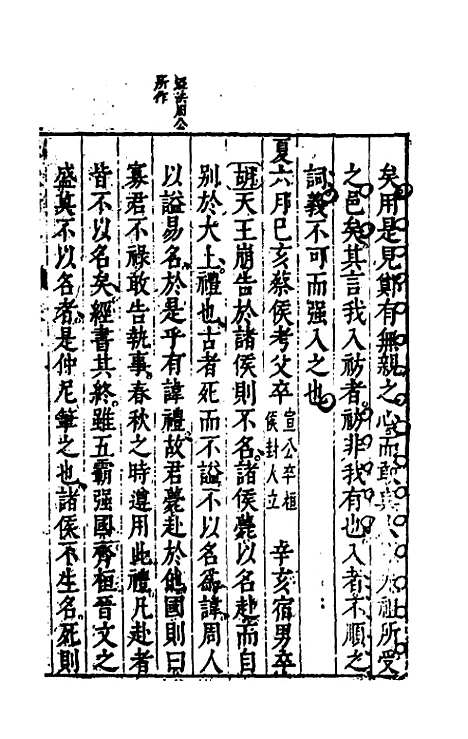 諡法周公
所作
矣用是見鄭有無親之心而敢其先祖所受
之邑矣其言我入祊者祊非我有也入者不順之
詞義不可而强入之也
夏六月己亥蔡侯考父卒宣公卒桓侯封人立 辛亥宿男卒
胡天王崩告於諸侯則不名諸侯薨以名赴而自
别於大上禮也古者死而不謚不以名為諱周人
以謚易名於是乎有諱禮故君薨赴於他國則曰
寡君不禄敢告執事春秋之時遵用此禮凡赴者
皆不以名矣經書其終雖五霸强國齊桓晉文之
盛莫不以名者是仲尼筆之也諸侯不生名死則